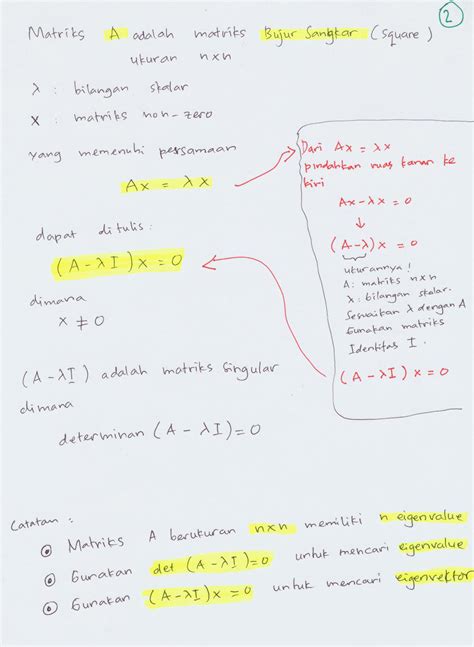 2
Matriks A adalah matriks Bujur Sangkar (square)
ukuran nxn
λ : bilangan skalar
x : matriks non-zero
yang memenuhi persamaan
Ax = λx
dapat ditulis:
(A-λI)x=0
dimana
x ≠ 0
(A-λI) adalah matriks singular
dimana
determinan (A-λI)=0
Dari Ax = λx
pindahkan ruas kanan ke
kiri
Ax-λx = 0
↓
(A-λ)x = 0
ukurannya!
A: matriks nxn
λ: bilangan skalar.
Sesuaikan λ dengan A
Gunakan matriks
Identitas I.
(A-λI)x=0
Catatan :
Matriks A berukuran nxn memiliki n eigenvalue
Gunakan det (A-λI)=0 untuk mencari eigenvalue
Gunakan (A-λI)x=0 untuk mencari eigenvektor